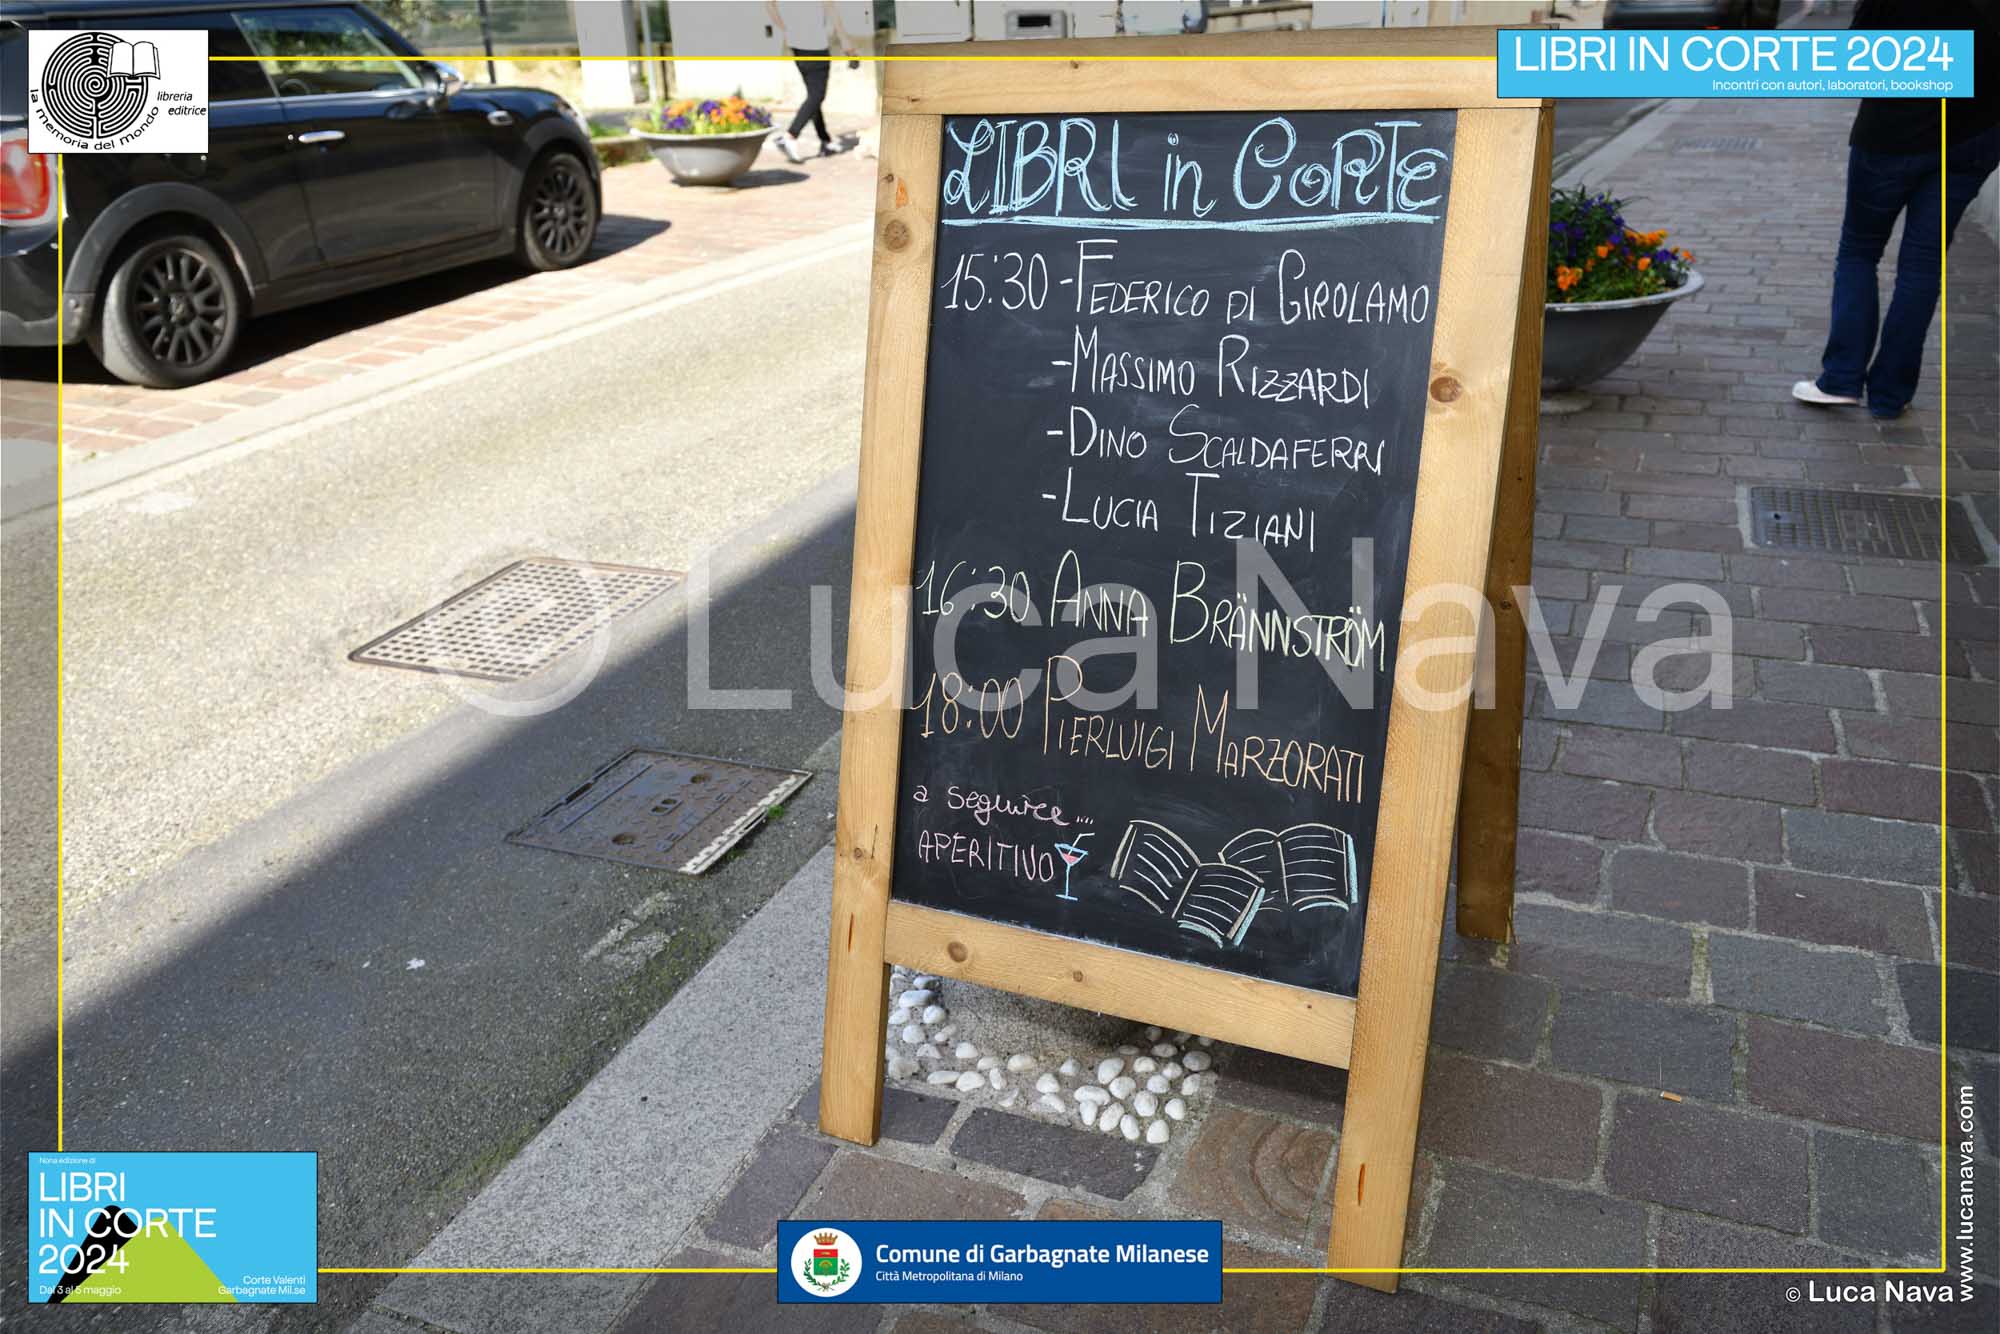 la memoria del mondo
libreria
editrice
LIBRI IN CORTE 2024
Incontri con autori, laboratori, bookshop
LIBRI in CORTE
15:30 - FEDERICO DI GIROLAMO
- MASSIMO RIZZARDI
- DINO SCALDAFERRI
- LUCIA TIZIANI
16:30 ANNA BRÄNNSTRÖM
18:00 PIERLUIGI MARZORATI
a seguire....
APERITIVO
© Luca Nava
Nona edizione di
LIBRI
IN CORTE
2024
Dal 3 al 5 maggio
Corte Valenti
Garbagnate Mil.se
Comune di Garbagnate Milanese
Città Metropolitana di Milano
© Luca Nava
www.lucanava.com